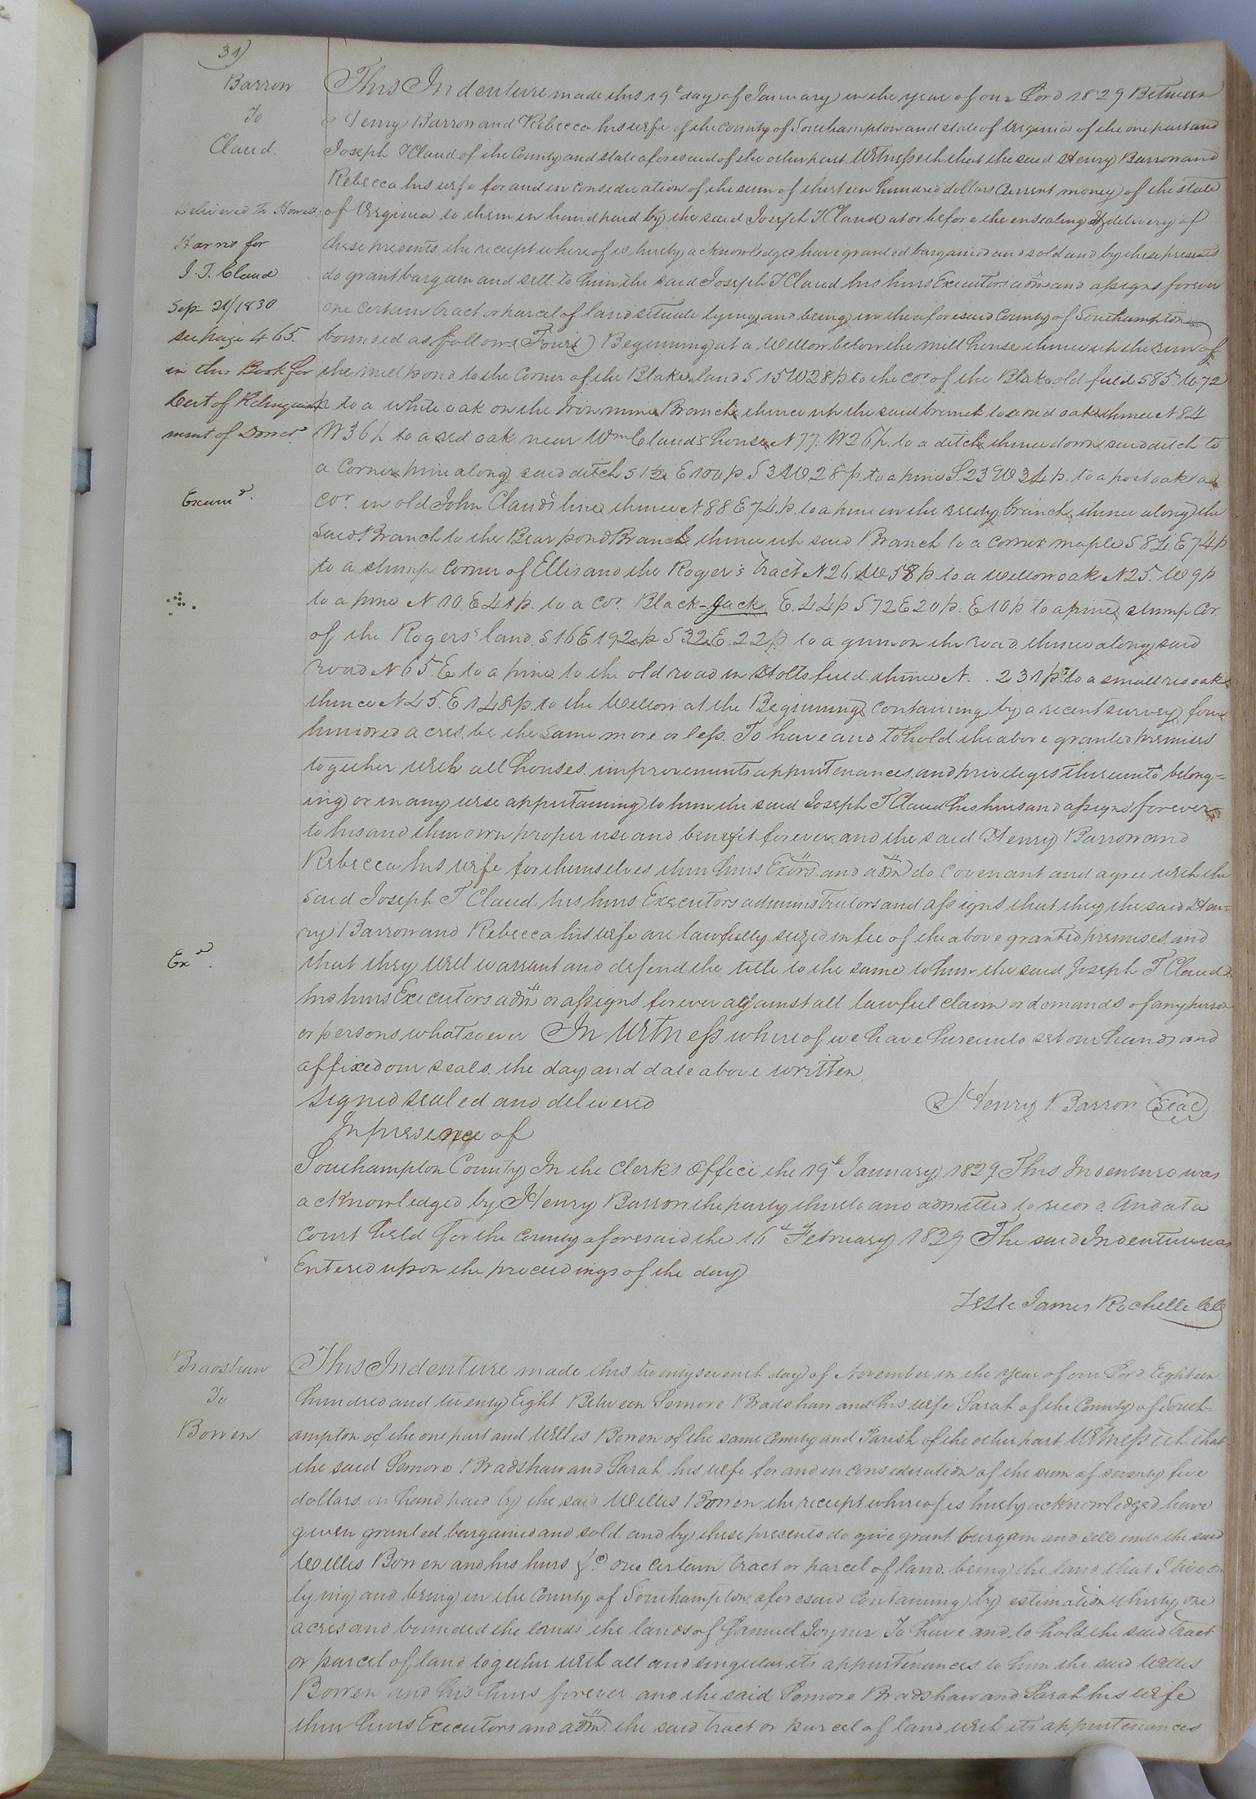 31)
Barron
To
Claud.
Delivered to Howell
Harris for
J. T. Claud
Sep. 20/1830
see page 465
in this Book for
Cert of Relinquish
ment of Dower
Exam.d
Ex.d
This Indenture made this 19t day of January in the year of our Lord 1829 Between
Henry Barron and Rebecca his wife of the County of Southampton and state of Virginia of the one part and
Joseph T Claud of the County and state aforesaid of the other part Witnesseth that the said Henry Barron and
Rebecca his wife for and in consideration of the sum of thirteen hundred dollars current money of the state
of Virginia to them in hand paid by the said Joseph T Claud at or before the ensealing & delivery of
these presents the receipt where of is hereby acknowledged have granted bargained and sold and by these presents
do grant bargain and sell to him the said Joseph T Claud his heirs Executors adms and assigns forever
one certain tract or parcel of land situate lying and being in the aforesaid County of Southampton
bounded as follows (Towit) Beginning at a Willow below the mill house thence up the run of
the mill pond to the corner of the Blakes land S 15 W 28 p to the cor of the Blakes old field S 85 W 72
p to a white oak on the Iron mine Branch, thence up the said branch to a red oak thence N 84
W 36 p to a red oak near Wm Claud's house N 77 W 26 p. to a ditch thence down said ditch to
a Corner pine along said ditch S 1½ E 100 p. S 3 W 28 p. to a pine S. 23 W 34 p. to a post oak a
cor. in old John Claud's line thence N 88 E 74 p. to a pine in the reedy branch, thence along the
said Branch to the Bear pond Branch thence up said Branch to a corner maple S 84 E 74 p
to a stump corner of Ellis and the Roger's Tract N 26 W 58 p to a Willow oak N 25 W 9 p
to a pine N 10 E 41 p. to a cor. Black-Jack, E. 44 p S 72 E 20 p. E 10 p to a pine stump cor.
of the Rogers' land, S 16 E 192 p S 32 E. 22 p to a gum on the road thence along said
road N 65 E to a pine to the old road in Stotts field thence N. . 231 p to a small red oak
thence N 45. E 148 p to the Willow at the Beginning, containing by a recent survey four
hundred acres, be the same more or less. To have and to hold the above granted premises
together with all houses, improvements appurtenances, and privileges thereunto belong=
ing or in any wise appertaining to him the said Joseph T Claud his heirs and assigns forever
to his and their own proper use and benefit forever, and the said Henry Barron and
Rebecca his wife for themselves their heirs Exors and adms do covenant and agree with the
said Joseph T Claud, his heirs Executors administrators and assigns that they the said Hen-
ry Barron and Rebecca his wife are lawfully seized in fee of the above granted premises and
that they will warrant and defend the title to the same to him the said Joseph T Claud
his heirs Executors adms or assigns forever against all lawful claim or demands of any person
or persons whatsoever In Witness whereof we have hereunto set our hands and
affixed our seals the day and date above written
Signed sealed and delivered Henry Barron (Seal)
In presence of
Southampton County In the Clerks Office the 19t January 1829 This Indenture was
acknowledged by Henry Barron the party thereto and admitted to record. And at a
Court held for the County aforesaid the 16th February 1829 The said Indenture was
Entered upon the proceedings of the day
Teste James Rochelle Clk
Bradshaw
To
Bowen
This Indenture made this twenty seventh day of November in the year of our Lord Eighteen
hundred and twenty Eight Between Bradshaw and his wife Sarah of the County of South-
ampton of the one part and Willis Bowen of the same County and Parish of the other part, Witnesseth that
the said Bradshaw and Sarah his wife for and in consideration of the sum of seventy five
dollars in hand paid by the said Willis Bowen, the receipt whereof is hereby acknowledged have
given granted bargained and sold and by these presents do give grant bargain and sell unto the said
Willis Bowen and his heirs &c. one certain tract or parcel of land being the land that I live on
lying and being in the County of Southampton aforesaid containing by estimation thirty one
acres and bounded the lands the lands of Samuel Joyner To have and to hold the said tract
or parcel of land together with all and singular its appurtenances to him the said Willis
Bowen and his heirs forever and the said Bradshaw and Sarah his wife
their heirs Executors and adms the said tract or parcel of land with its appurtenances